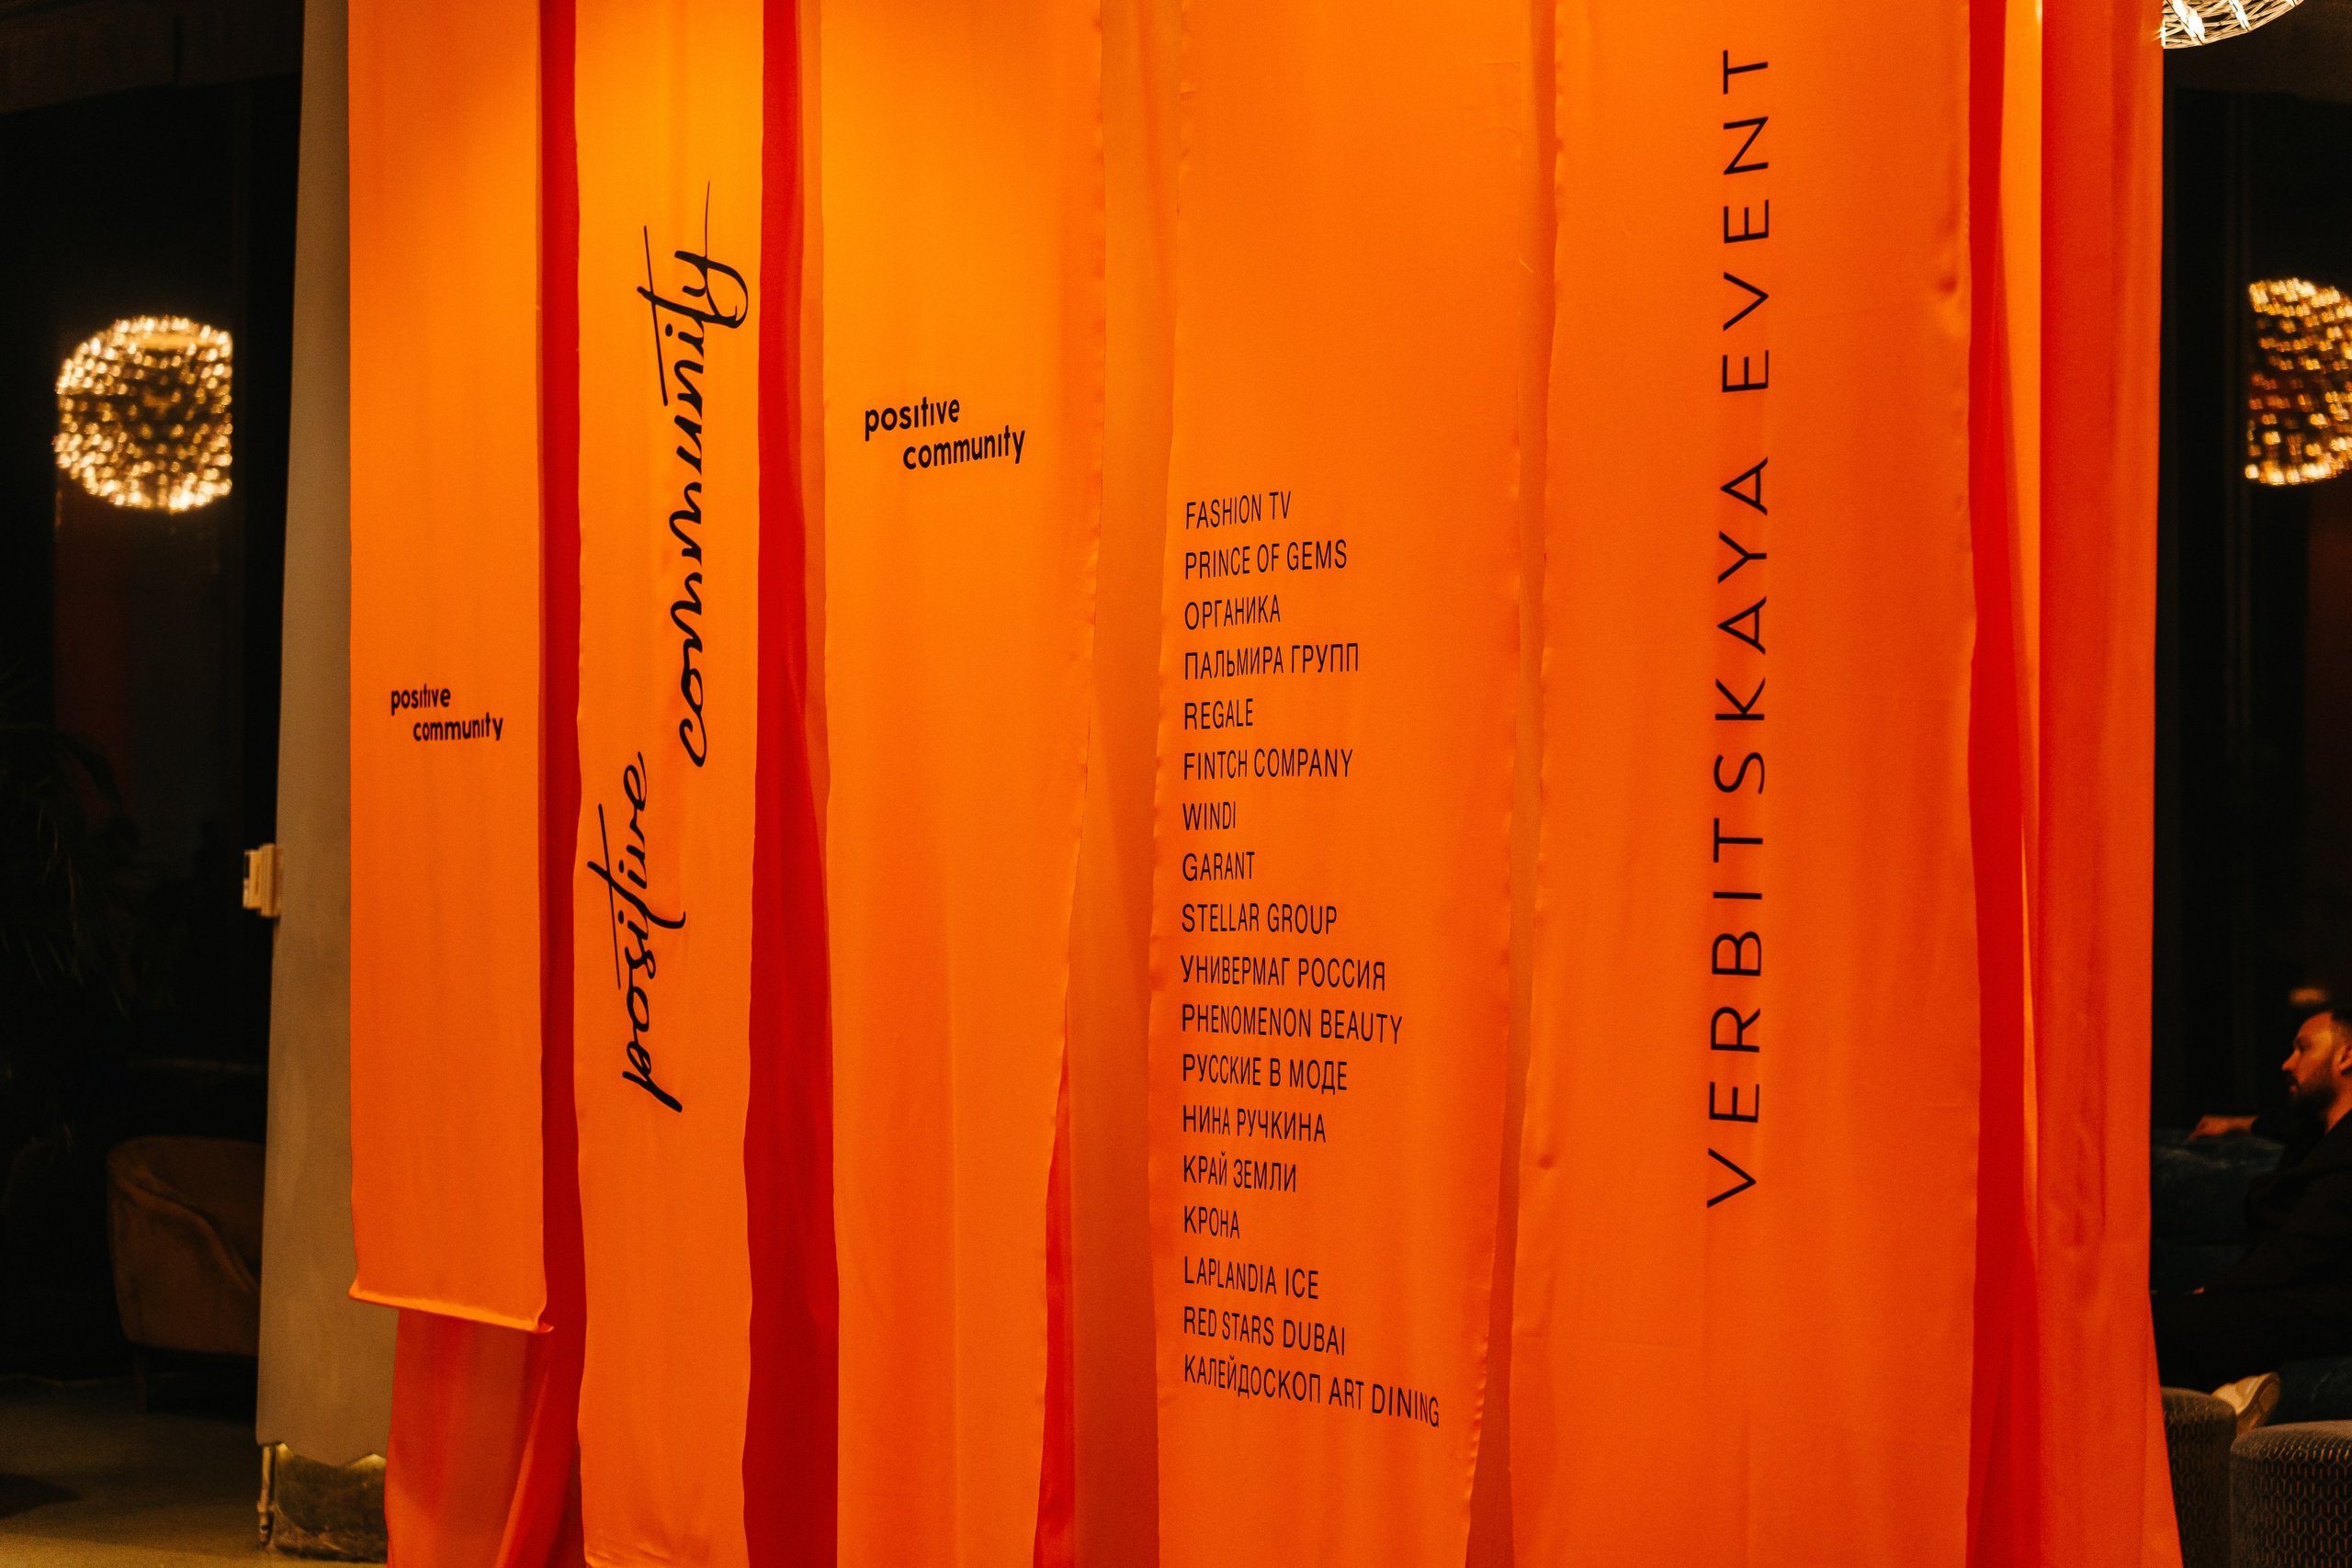 positive
community
positive
community
positive
community
FASHION TV
PRINCE OF GEMS
ОРГАНИКА
ПАЛЬМИРА ГРУПП
REGALE
FINTCH COMPANY
WINDI
GARANT
STELLAR GROUP
УНИВЕРМАГ РОССИЯ
PHENOMENON BEAUTY
РУССКИЕ В МОДЕ
НИНА РУЧКИНА
КРАЙ ЗЕМЛИ
КРОНА
LAPLANDIA ICE
RED STARS DUBAI
КАЛЕЙДОСКОП ART DINING
VERBITSKAYA EVENT